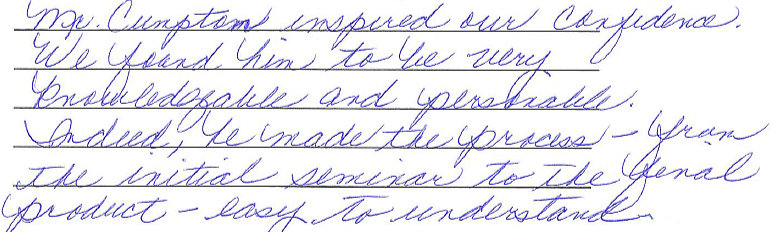 Mr. Cumptom inspired our confidence.
We found him to be very
knowledgeable and personable.
Indeed, he made the process – from
the initial seminar to the final
product – easy to understand.